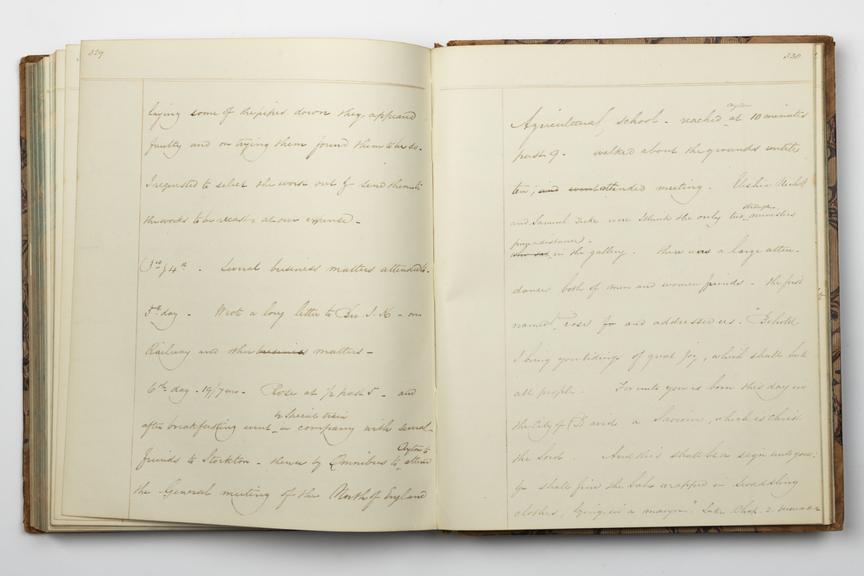 329
laying some of the pipes down they appeared
faulty and on trying them found them to be so.
I requested to select the worst out & send them to
the works to be recast at our expense -
3rd & 4th. Several business matters attended to.
5th day. Wrote a long letter to Bro J. K - on
Railway and other business matters -
6th day. 19/7 mo. Rose at ½ past 5 - and
by Special train
after breakfasting went in company with several
friends to Stockton - thence by Omnibus to Ayton to attend
the General meeting of the North of England
330
Agricultural school - reached Ayton at 10 minutes
past 9. walked about the grounds until
ten; and went attended meeting.
and Samuel Tuke were I think the only two stranger ministers
from a distance
who sat in the gallery. There was a large atten-
dance both of men and women friends - the first
named rose and addressed us. "Behold
I bring you tidings of great joy, which shall be to
all people. For unto you is born this day in
the City of David a Saviour, which is Christ
the Lord. And this shall be a sign unto you:
Ye shall find the babe wrapped in swaddling
clothes, lying in a manger." Luke Chap. 2.